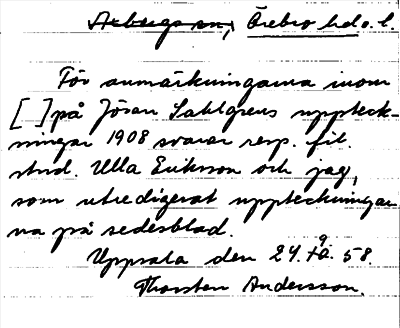 Arbergs sn, Örebro hd o. l.
För anmärkningarna inom
[ ] på Jöran Sahlgrens uppteck-
ningar 1908 svarar resp. fil.
stud. Ulla Eriksson och jag,
som utredigerat uppteckningar
na på sedesblad.
Uppsala den 24. 9. 58.
Thorsten Andersson.